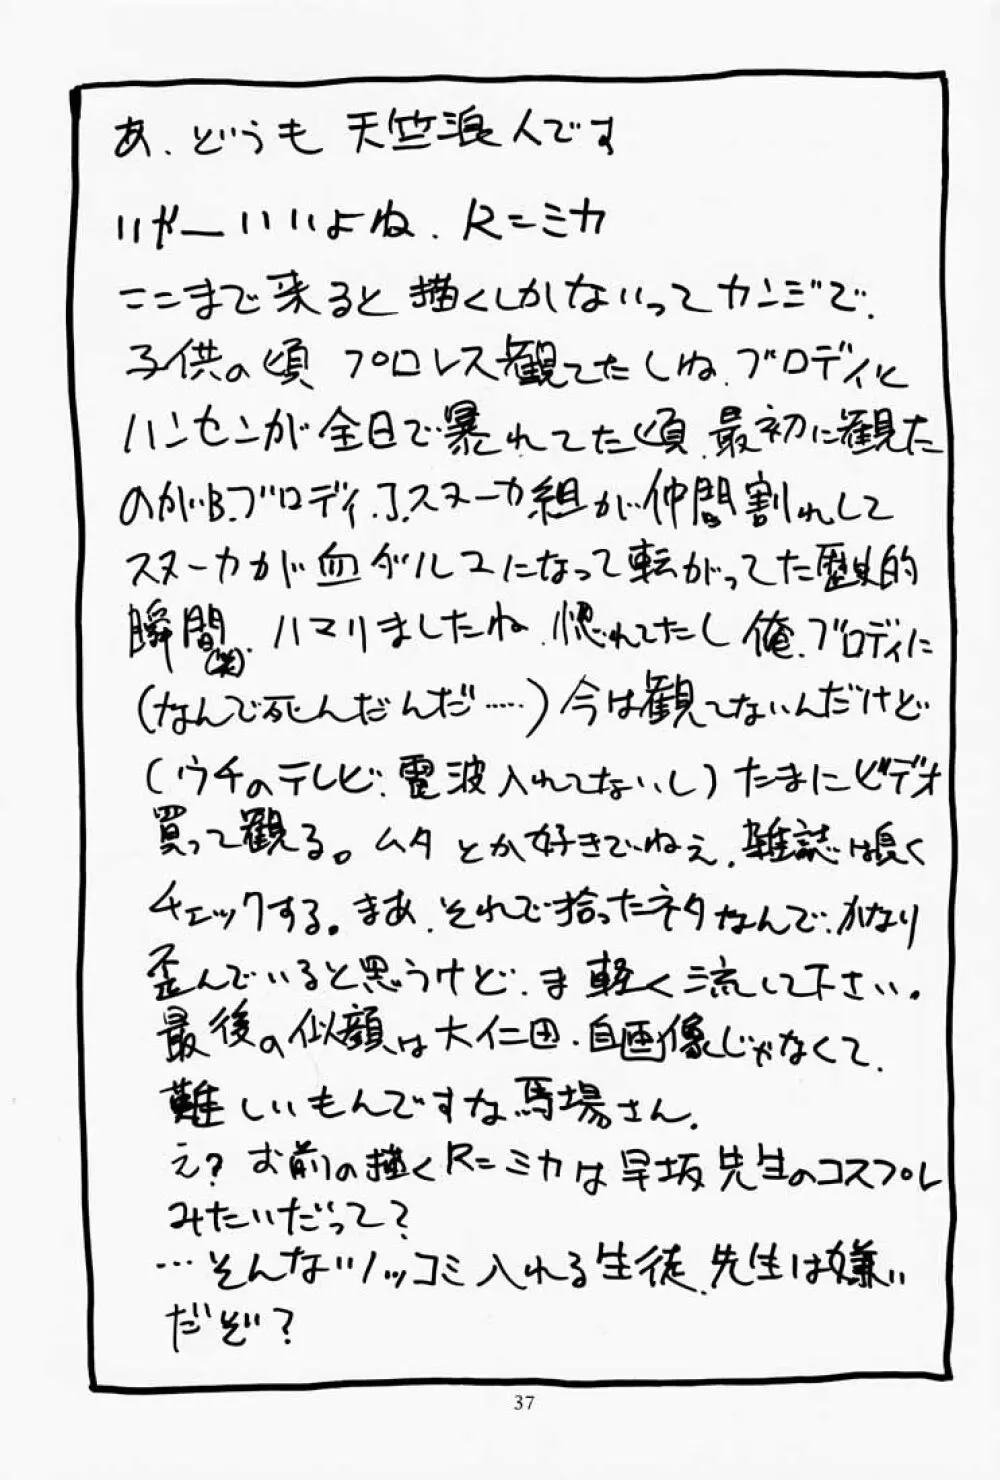 あ、どうも 天竺浪人です
いやーいいよね、R=ミカ
ここまで来ると描くしかないってカンジで、
子供の頃 プロレス観てたしね、ブロディと
ハンセンが全日で暴れてた頃、最初に観た
のがB.ブロディ、J.スヌーカ組が仲間割れして
スヌーカが血ダルマになって転がってた歴史的
瞬間(笑)、ハマりましたね、惚れてたし俺、ブロディに
(なんで死んだんだ……)今は観てないんだけど
(ウチのテレビ、電波入れてないし)たまにビデオ
買って観る。ムタとか好きでねえ、雑誌は良く
チェックする。まあ、それで拾ったネタなんで、かなり
歪んでいると思うけど、ま軽く流して下さい。
最後の似顔は大仁田、自画像じゃなくて、
難しいもんですな馬場さん。
え?お前の描くR=ミカは早坂先生のコスプレ
みたいだって?
…そんなツッコミ入れる生徒、先生は嫌い
だぞ?
37